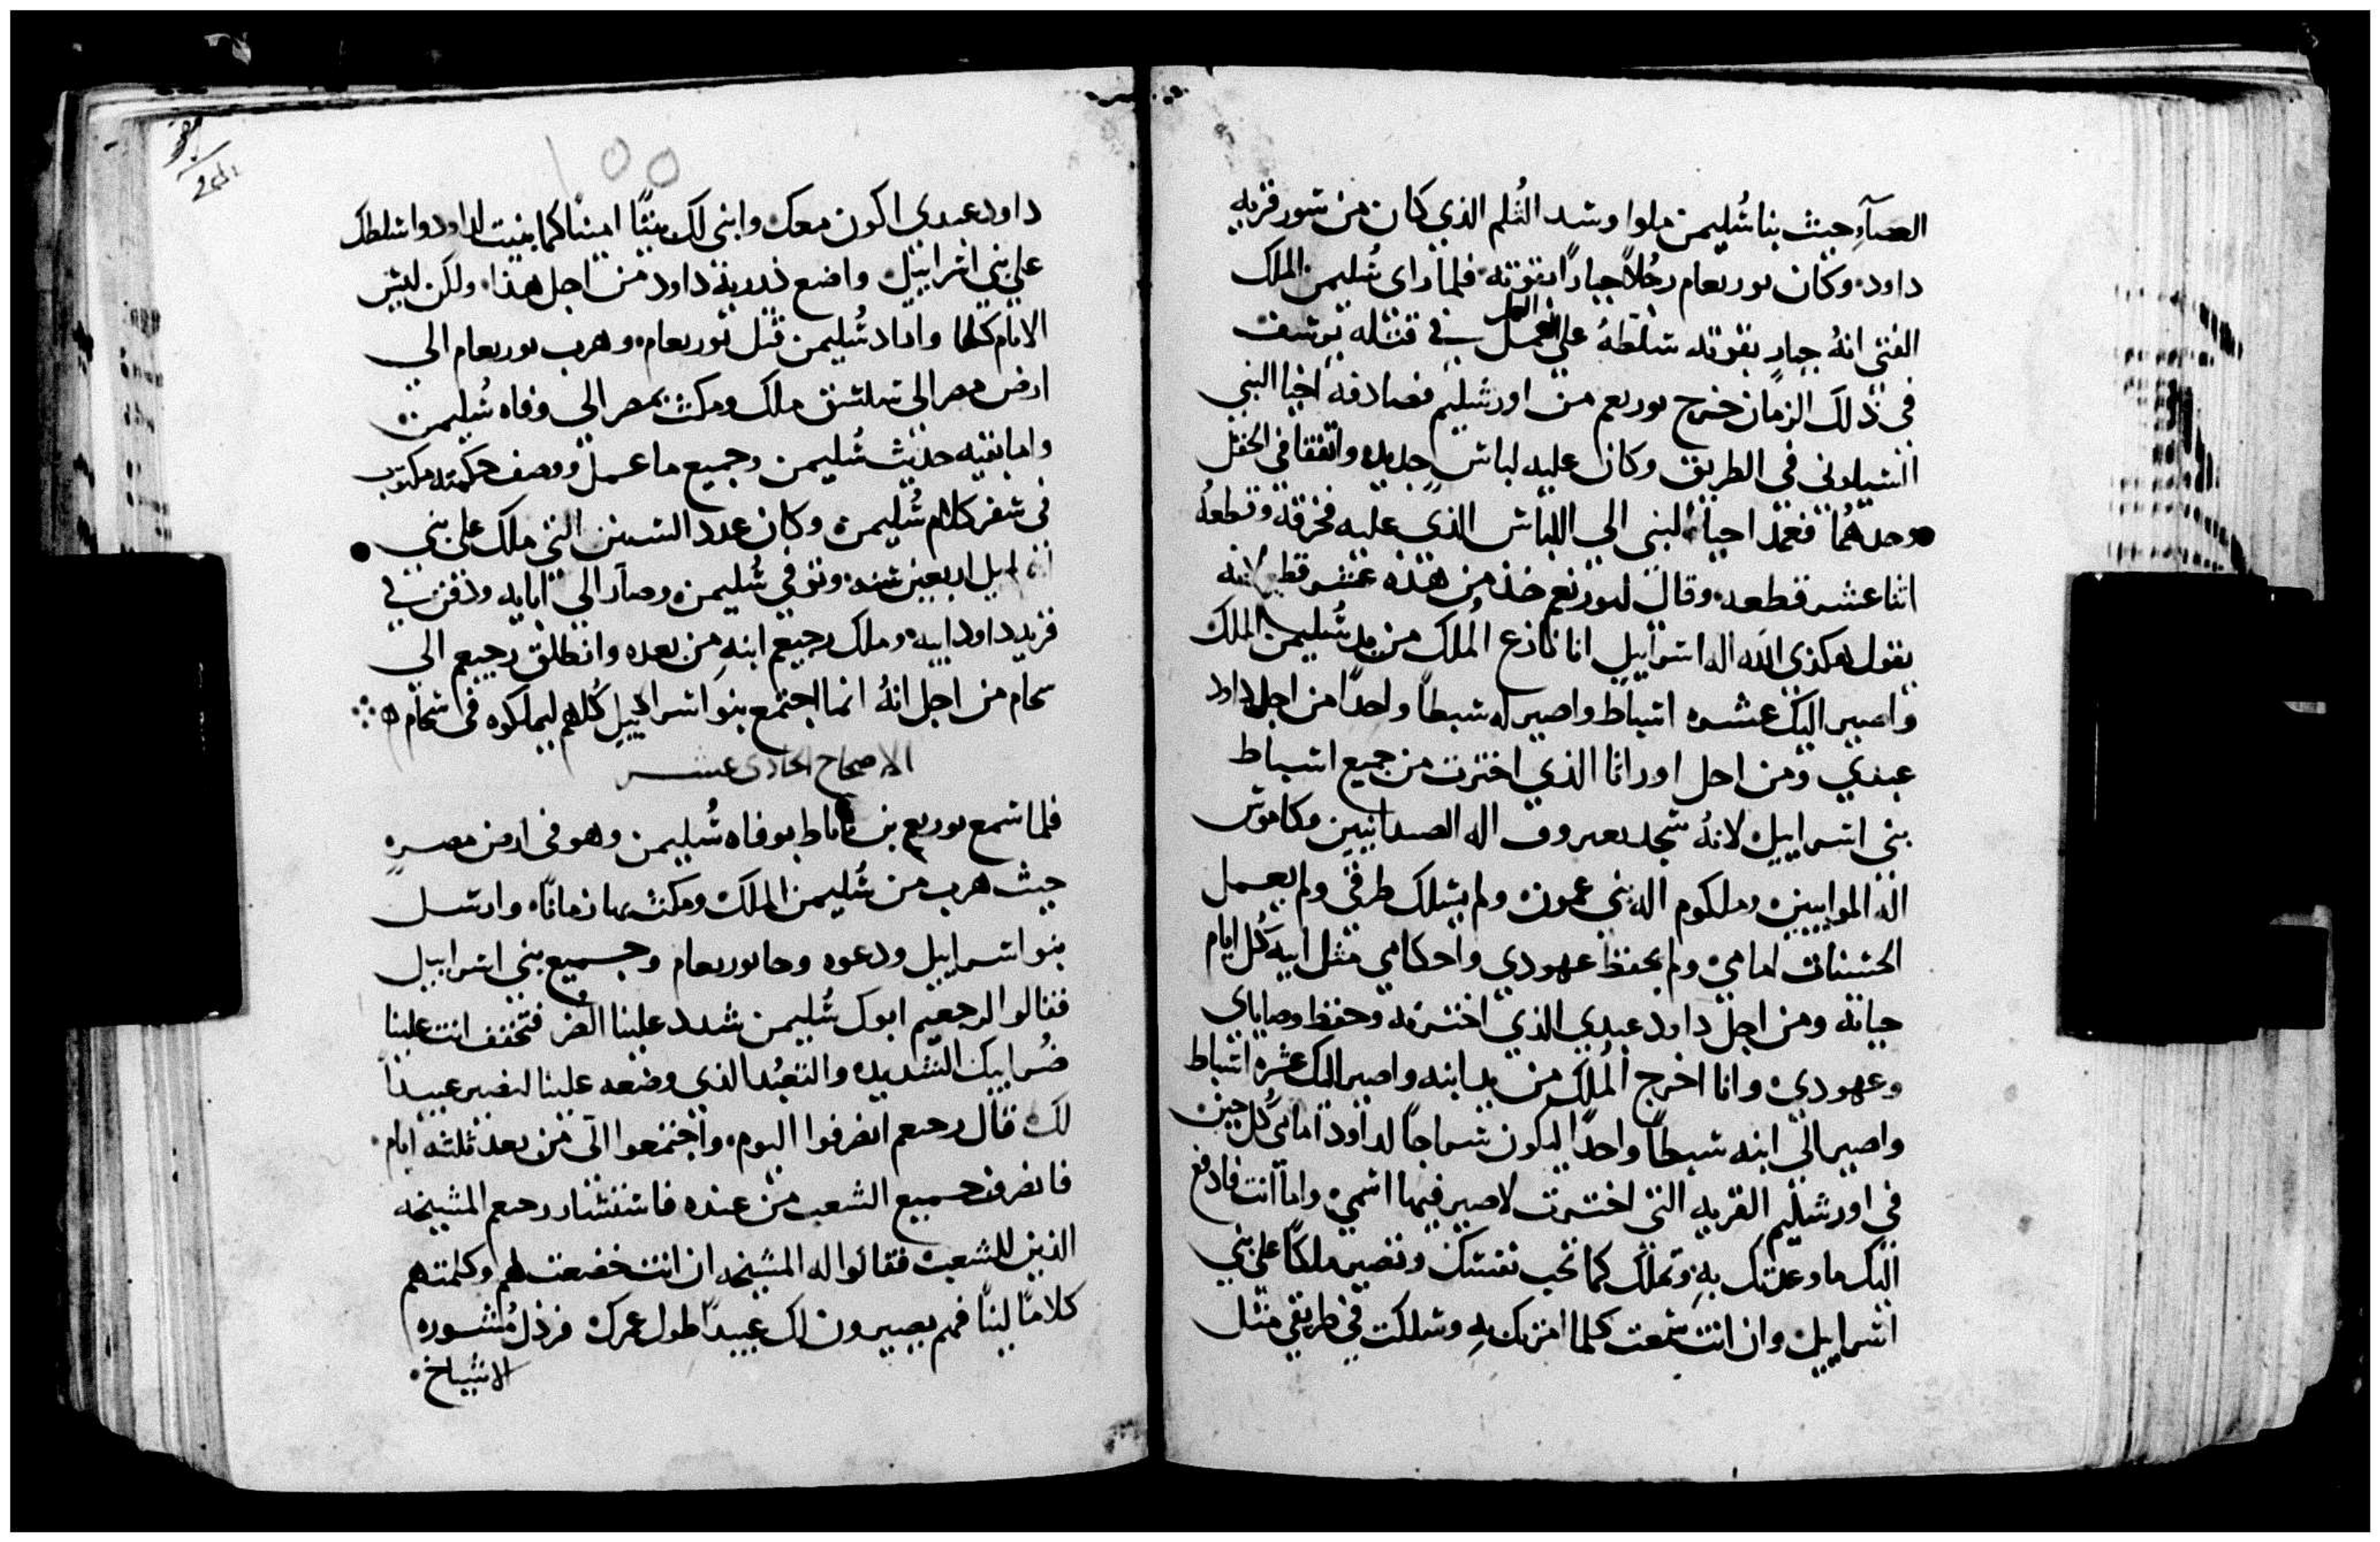 العصآءِ حيث بنا سُليمن ملوا وسد الثلم الذي كان من سور قريه
داود. وكان يوربعام رجُلاً جباراً بقوته. فلما راى سُليمن الملك
الفتى انهُ جبار بقوته سلطهُ على العمل في قتله يوسف
في ذلك الزمان خرج يوربعم من اورشليم فصادفه اخيا النبي
السيلوني في الطريق وكان عليه لباس جديد واتفقا في الحقل
وحدهُما فعمد احيا النبي الي اللباس الذي عليه فخرقه وقطعهُ
اثنا عشر قطعه. وقال ليوربعم خذ من هذه عشر قطع لانه
يقول هكذى الله اله اسراييل انا نازع المُلك من يد سُليمن الملك
واصير اليك عشره اسباط واصير له سبطاً واحداً من اجل داود
عبدي ومن اجل اورانا الذي اخترت من جميع اسباط
بني اسراييل لانهُ سجد بعروف اله الصيدانيين وكاموش
اله الموابيين وملكوم اله بني عمون ولم يسلك طرقي ولم يعمل
الحسنات امامي ولم يحفظ عهودي واحكامي مثل ابيه كُل ايام
حياته ومن اجل داود عبدي الذي اخترته وحفظ وصاياي
وعهودي وانا اخرج المُلك من يد ابنه واصير اليك عشره اسباط
واصير الي ابنه سبطاً واحداً ليكون سراجاً لداود امامي كُل حين
في اورشليم القريه التي اخترت لاصير فيها اسمي واما انت فادفع
اليك ما وعدتك بهِ وتملك كما تحب نفسك وتصير ملكاً على بني
اسراييل وان انت سمعت كلما امرتك بهِ وسلكت في طريقي مثل
100
داود عبدي اكون معك وابني لك بيتًا امينا كما بنيت لداود واسلطك
علي بني اسراييل واضع ذريه داود من اجل هذا. ولكن ليس
الايام كلها واراد سُليمن قتل يوربعام. وهرب يوربعام الي
ارض مصر الي سلشق ملك ومكث بمصر الي وفاه سُليمن
واما بقيه حديث سُليمن وجميع ما عمل ووصف حكمته مكتوب
في سفر كلام سُليمن وكان عدد السنين التي ملك على بني
اسراييل اربعين سنه. وتوفي سُليمن وصار الي ابايه ودفن في
قريه داود ابيه. وملك رحبعم ابنهِ من بعده وانطلق رحبعم الي
سحام من اجل انهُ انما اجتمع بنو اسراييل كُلهم ليملكوه في سحام
الاصحاح الحادى عشر
فلما سمع يوربعم بن ناباط بوفاه سُليمن وهو في ارض مصر
حيث هرب من سُليمن الملك ومكث بها زمانًا. وارسل
بنو اسراييل ودعوه وجا يوربعام وجميع بني اسراييل
فقالوا لرحبعم ابوك سُليمن شدد علينا الضر فتخفف انت علينا
ضُر ابيك الشديده والتعبُد الذي وضعه علينا لنصير عبيداً
لك قال رحبعم انصرفوا اليوم. واجتمعوا الى من بعد ثلثه ايام.
فانصرف جميع الشعب من عنده فاستشار رحبعم المشيخه
الذين للشعب فقالوا له المشيخه ان انت خضعت لهم وكلمتهم
كلامًا لينًا فهم يصيرون لك عبيداً طول عمرك فرذل مُشوره
الاشياخ.